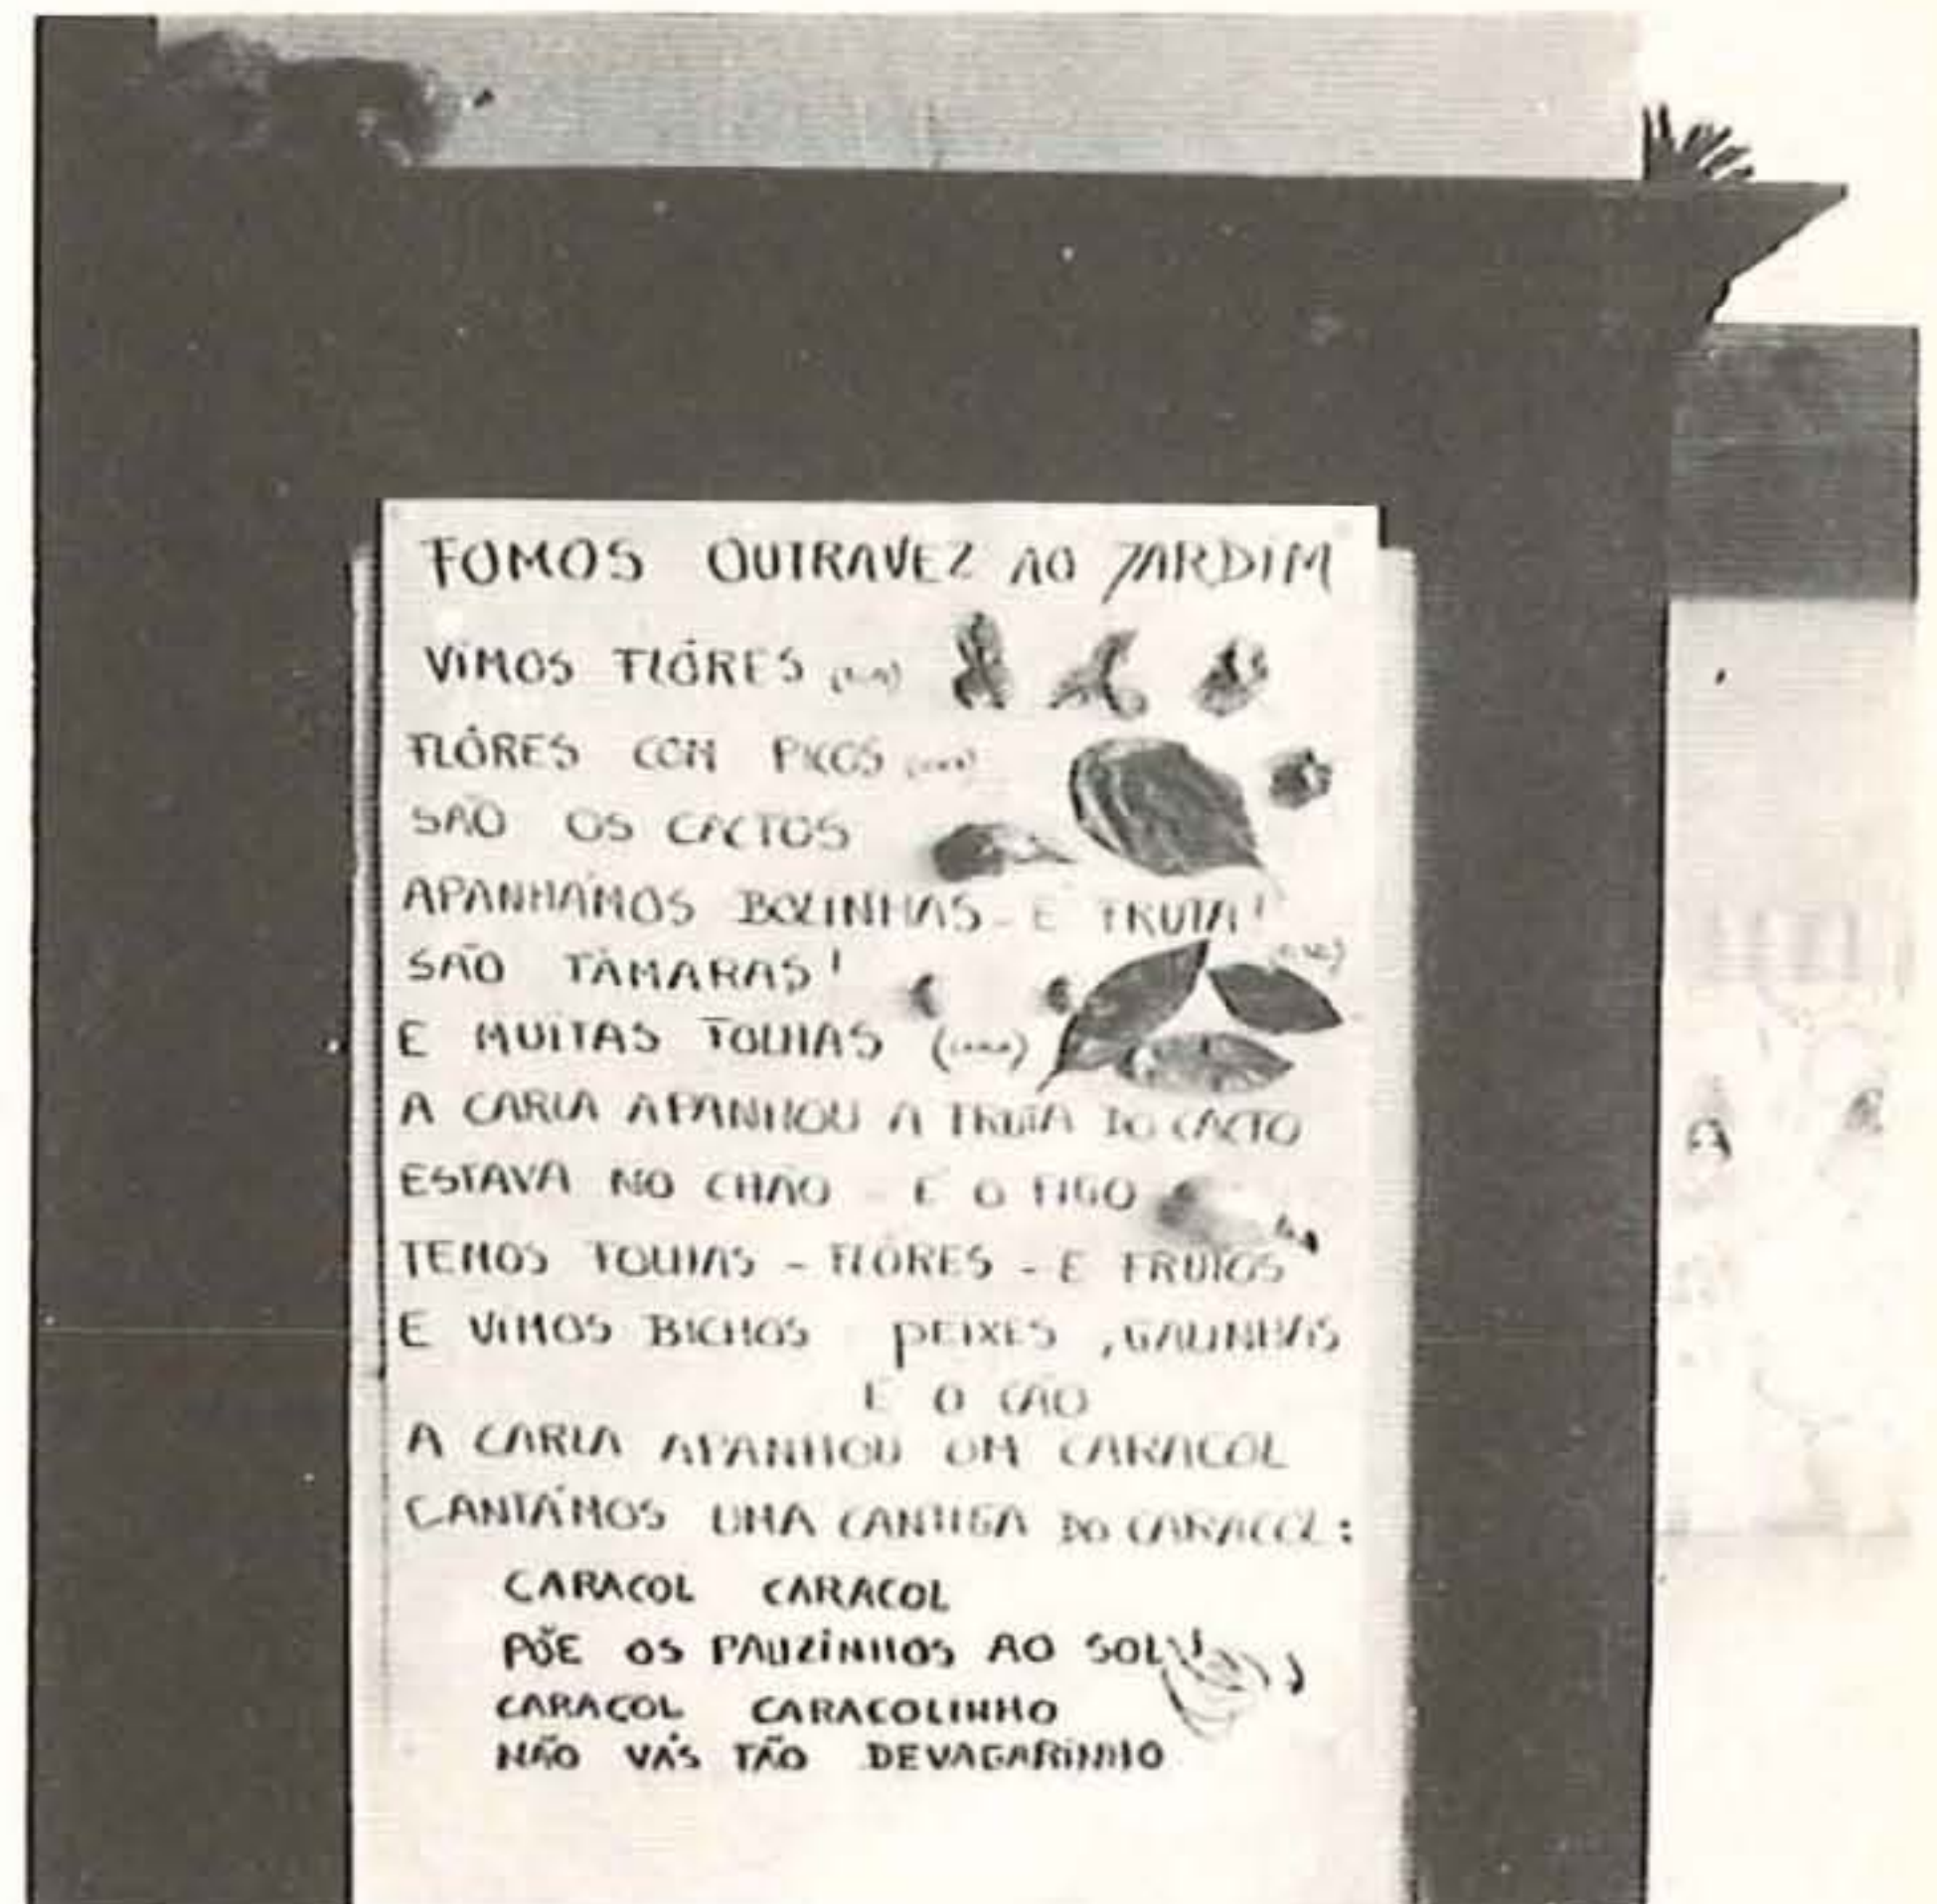 FOMOS OUTRAVEZ AO JARDIM
VIMOS FLÔRES
FLÔRES COM PICOS
SÃO OS CACTOS
APANHÁMOS BOLINHAS - É FRUTA!
SÃO TÂMARAS!
E MUITAS FOLHAS
A CARLA APANHOU A FRUTA DO CACTO
ESTAVA NO CHÃO - É O FIGO
TEMOS FOLHAS - FLÔRES - E FRUTOS
E VIMOS BICHOS PEIXES, GALINHAS
E O CÃO
A CARLA APANHOU UM CARACOL
CANTÁMOS UMA CANTIGA DO CARACOL:
CARACOL CARACOL
PÕE OS PAUZINHOS AO SOL
CARACOL CARACOLINHO
NÃO VÁS TÃO DEVAGARINHO